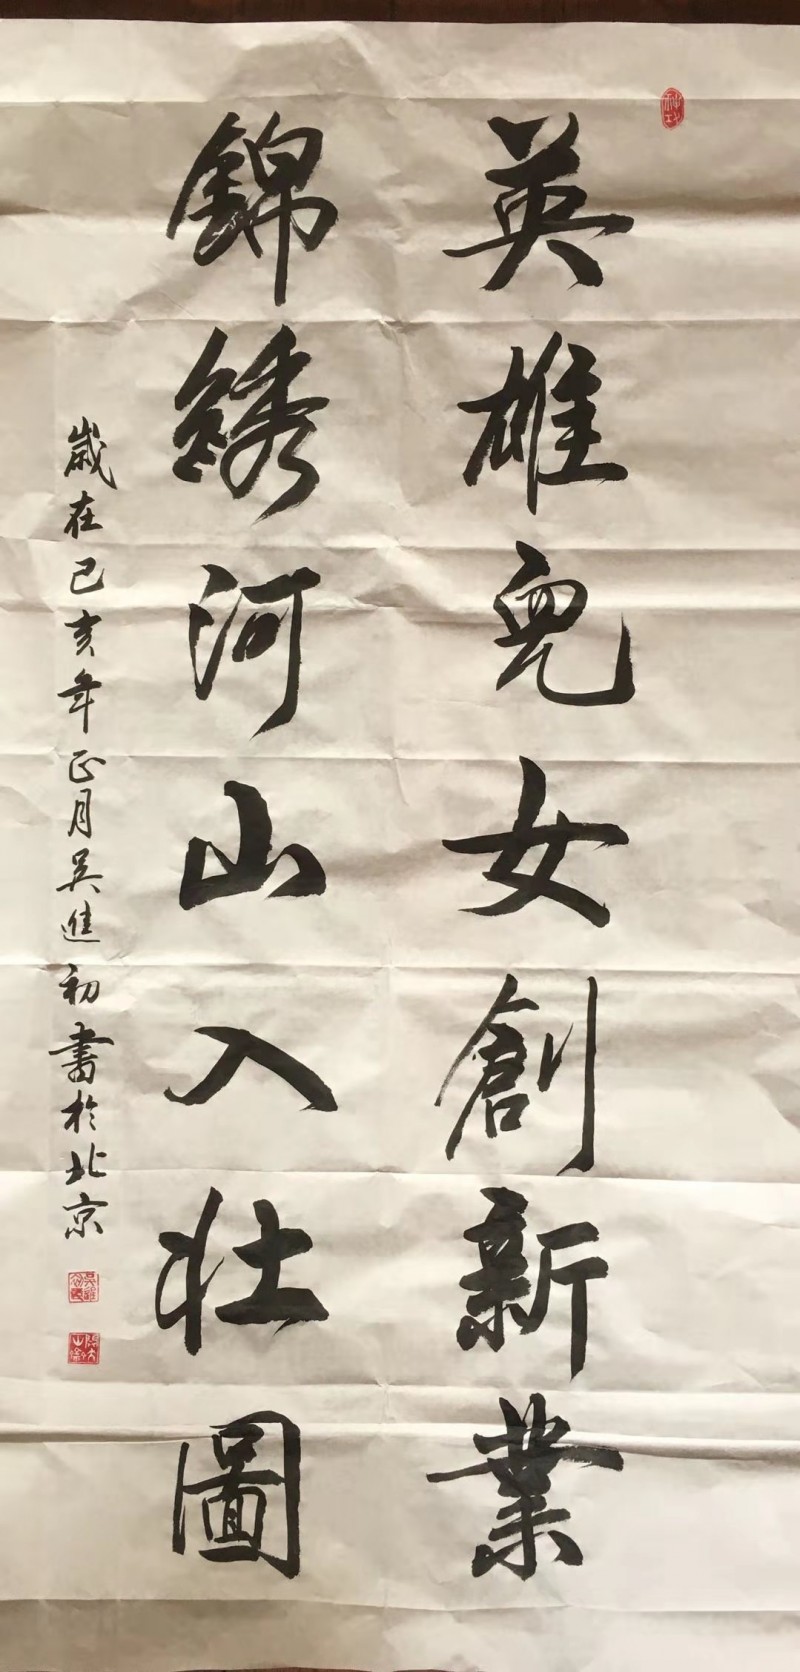 英雄兒女創新業
錦綉河山入壯圖
歲在己亥年正月吴進初書於北京